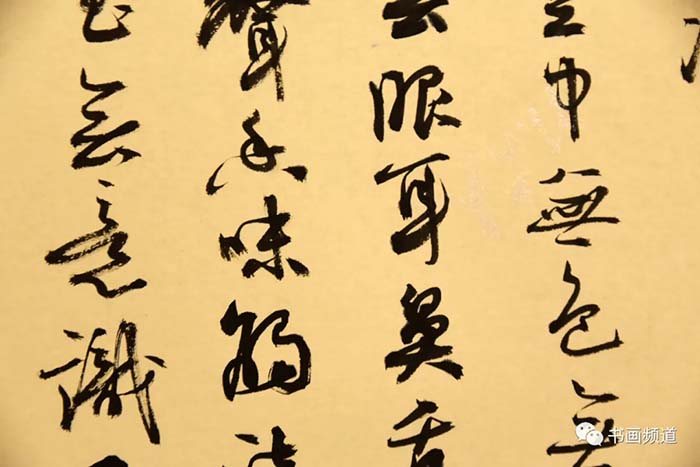 空中無色無
無眼耳鼻舌
聲香味觸法
至無意識
书画频道